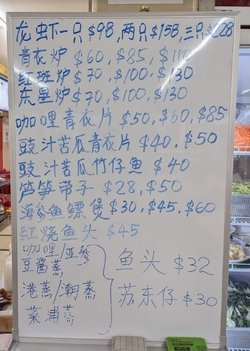 龙虾一只$98,两只$158,三只$228
青衣炉$60,$85,$110
红斑炉$70,$100,$130
东星炉$70,$100,$130
咖哩青衣片$50,$60,$85
豉汁苦瓜青衣片$40,$50
豉汁苦瓜竹仔鱼$40
笋箩吊子$28,$50
海参鱼鳔煲$30,$45,$60
红烧鱼头$45
咖哩/亚参
豆酱蒸
港蒸/潮蒸
菜甫蒸
鱼头$32
苏东仔$30